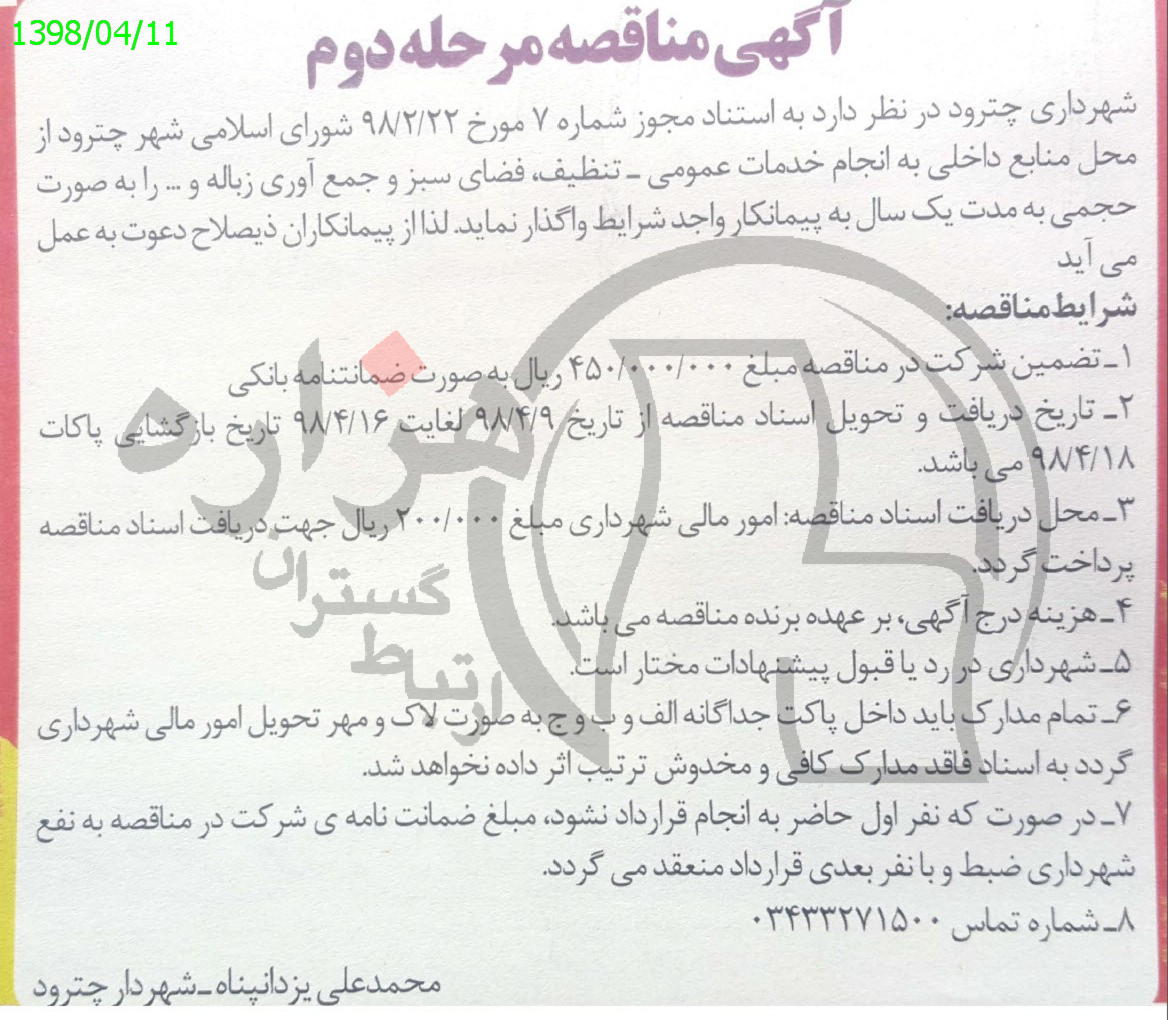 1398/04/11
آگهی مناقصه مرحله دوم
شهرداری چترود در نظر دارد به استناد مجوز شماره ۷ مورخ ۹۸/۲/۲۲ شورای اسلامی شهر چترود از
محل منابع داخلی به انجام خدمات عمومی ـ تنظیف، فضای سبز و جمع آوری زباله و ... را به صورت
حجمی به مدت یک سال به پیمانکار واجد شرایط واگذار نماید. لذا از پیمانکاران ذیصلاح دعوت به عمل
می آید
شرایط مناقصه:
۱ـ تضمین شرکت در مناقصه مبلغ ۴۵۰/۰۰۰/۰۰۰ ریال به صورت ضمانتنامه بانکی
۲ـ تاریخ دریافت و تحویل اسناد مناقصه از تاریخ ۹۸/۴/۹ لغایت ۹۸/۴/۱۶ تاریخ بازگشایی پاکات
۹۸/۴/۱۸ می باشد.
۳ـ محل دریافت اسناد مناقصه: امور مالی شهرداری مبلغ ۲۰۰/۰۰۰ ریال جهت دریافت اسناد مناقصه
پرداخت گردد.
۴ـ هزینه درج آگهی، بر عهده برنده مناقصه می باشد.
۵ـ شهرداری در رد یا قبول پیشنهادات مختار است.
۶ـ تمام مدارک باید داخل پاکت جداگانه الف و ب و ج به صورت لاک و مهر تحویل امور مالی شهرداری
گردد به اسناد فاقد مدارک کافی و مخدوش ترتیب اثر داده نخواهد شد.
۷ـ در صورت که نفر اول حاضر به انجام قرارداد نشود، مبلغ ضمانت نامه ی شرکت در مناقصه به نفع
شهرداری ضبط و با نفر بعدی قرارداد منعقد می گردد.
۸ـ شماره تماس ۰۳۴۳۳۲۷۱۵۰۰
محمدعلی یزدانپناه ـ شهردار چترود
هزاره
گستران
ارتباط